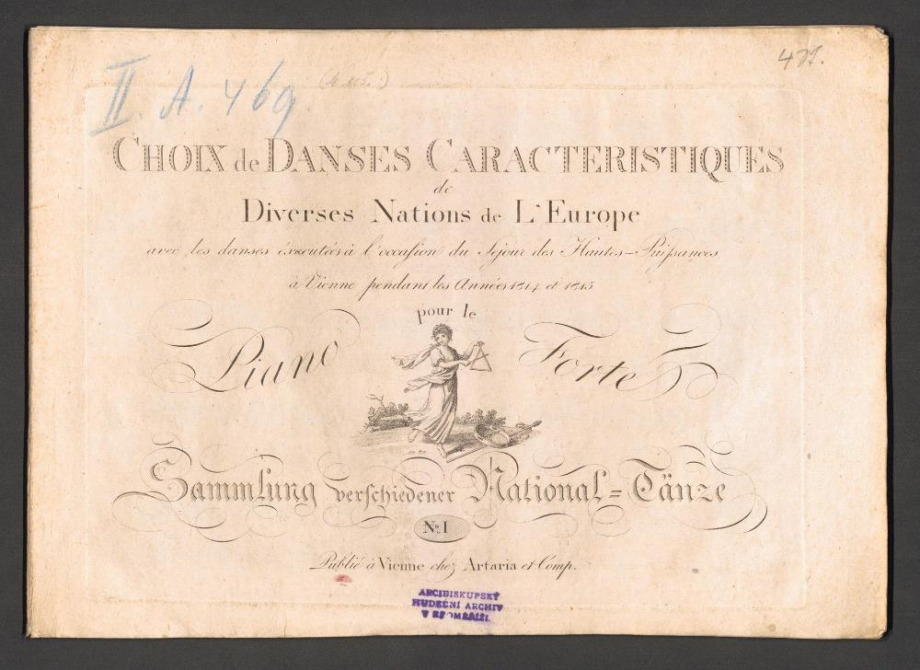 II. A. 469
CHOIX de DANSES CARACTERISTIQUES
de
Diverses Nations de L'Europe
avec les danses éxecutées à l'occasion du Sejour des Hautes-Puissances
à Vienne pendant les Années 1814 et 1815
pour le
Piano Forte
Sammlung verschiedener National=Tänze
No. I
Publié à Vienne chez Artaria et Comp.
ARCIBISKUPSKÝ
HUDEBNÍ ARCHIV
V KROMĚŘÍŽI.